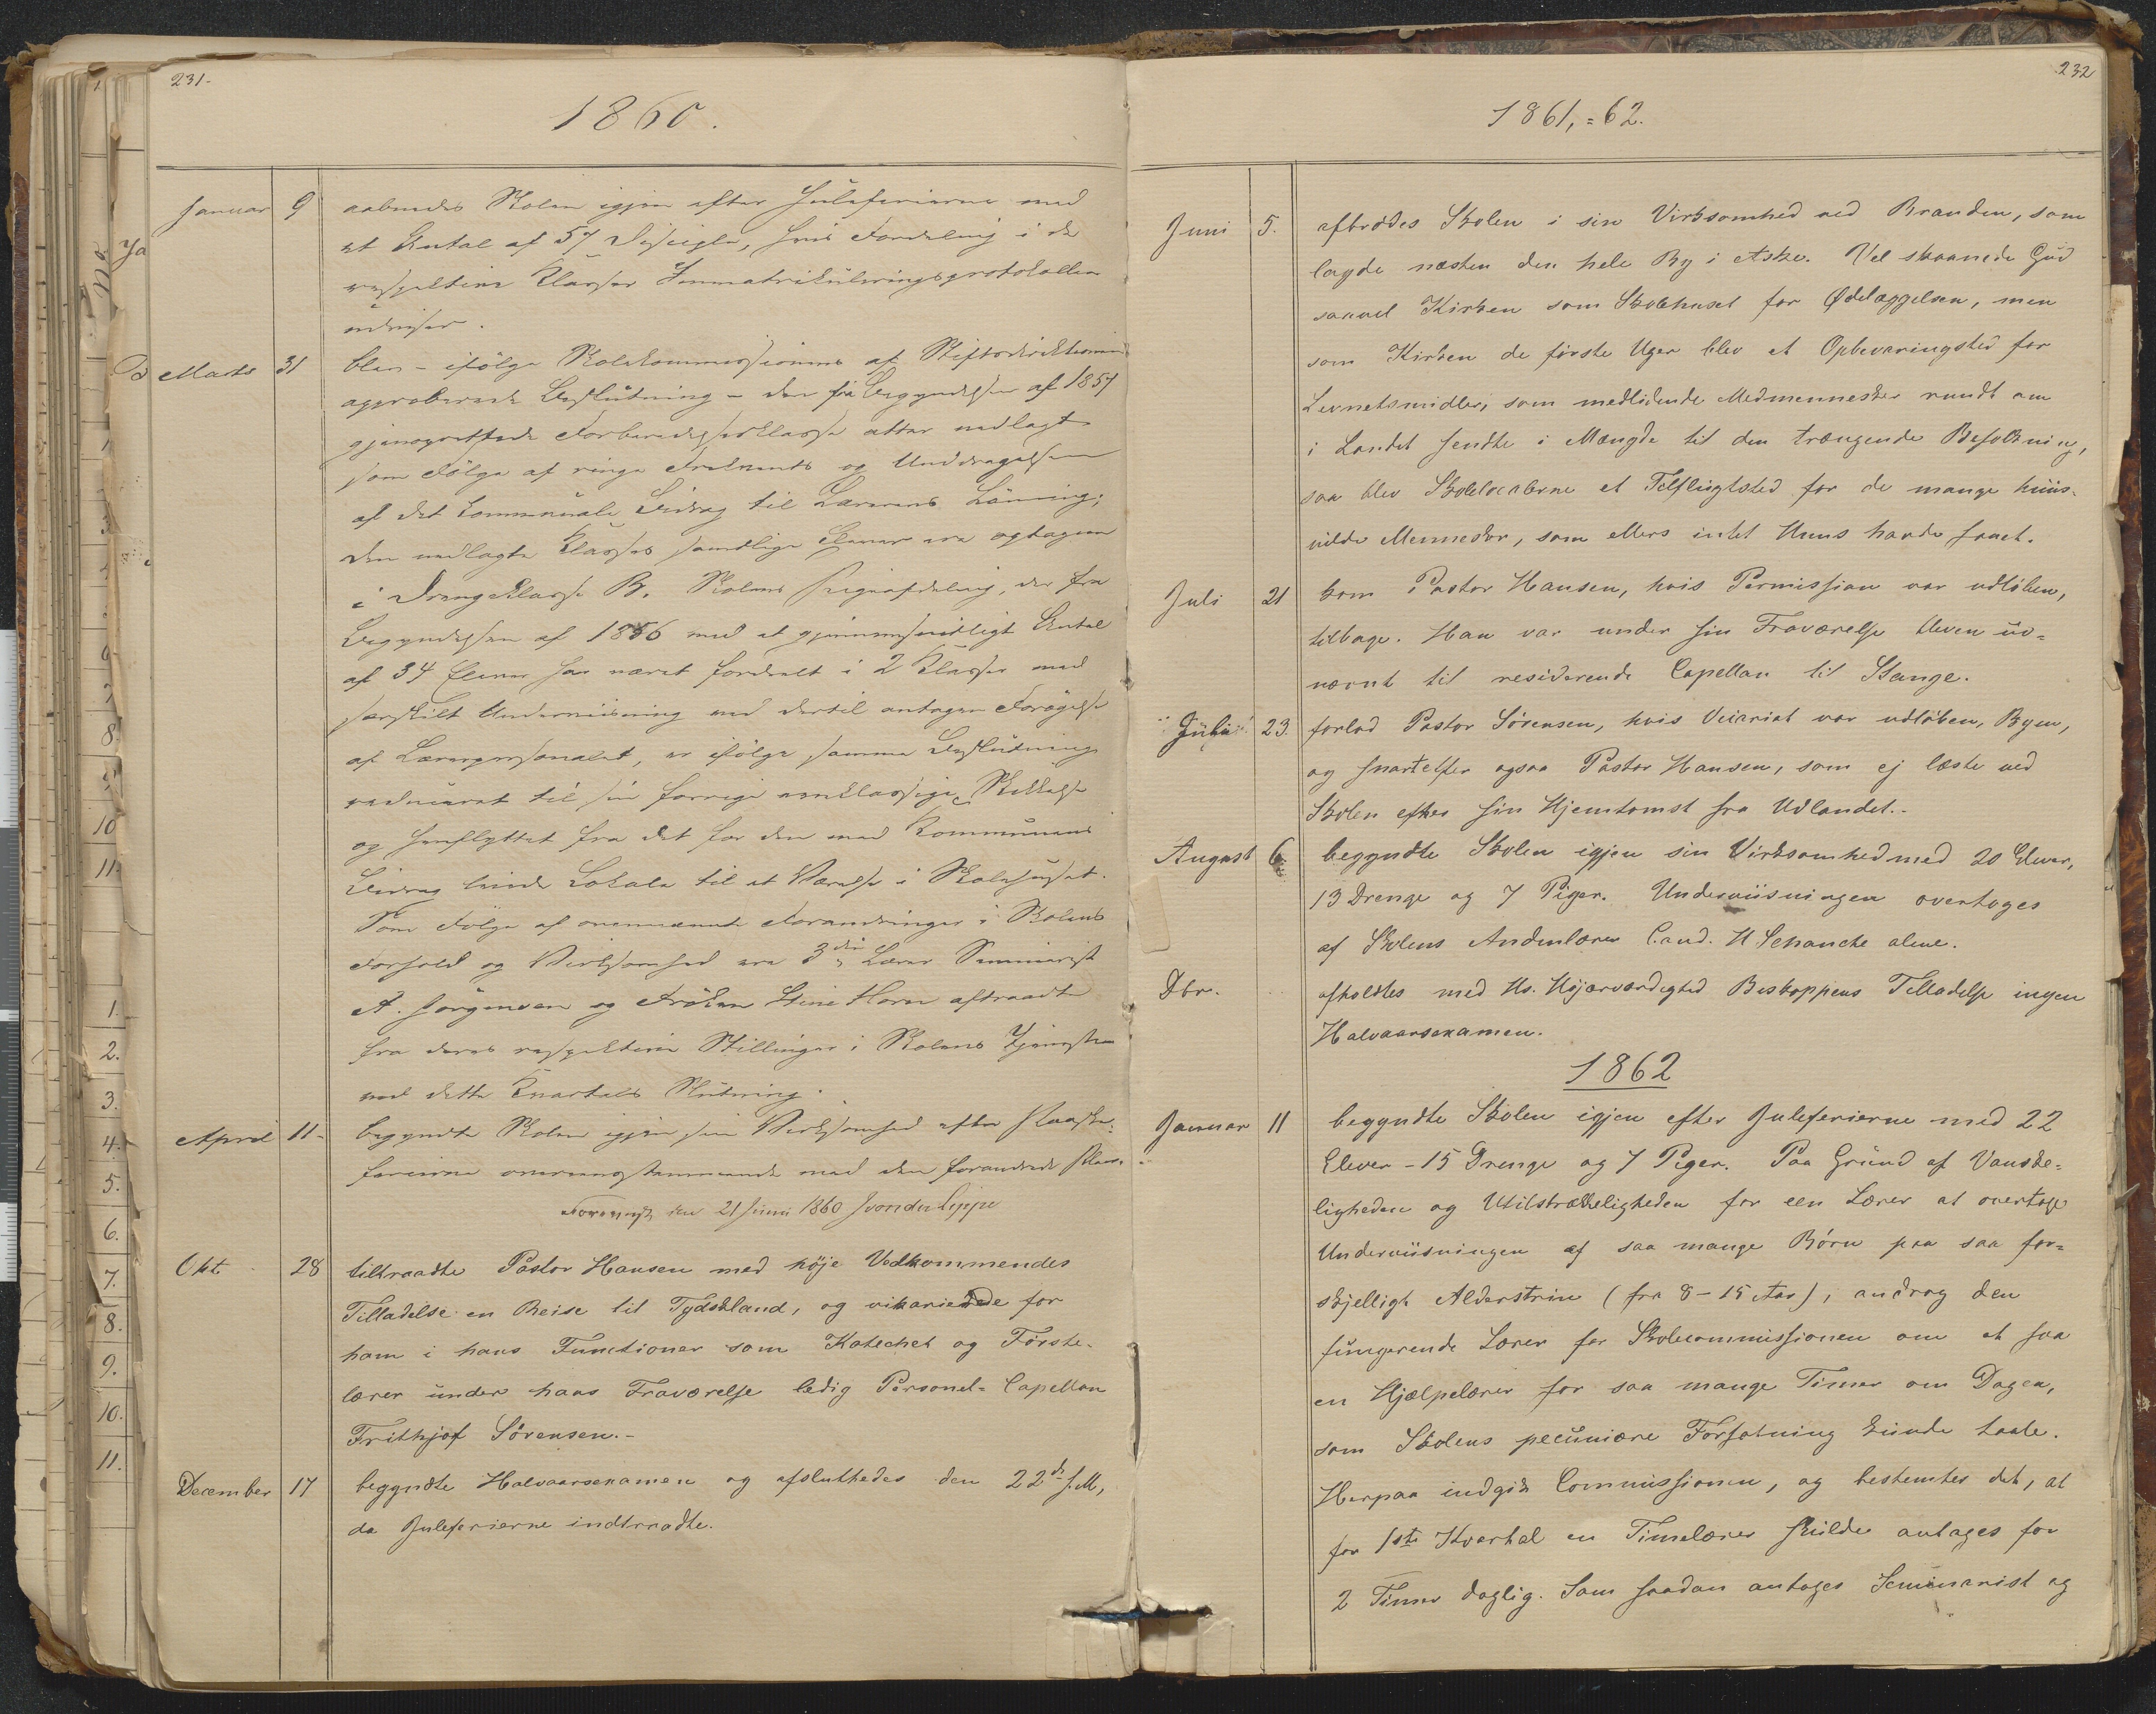 231.
1860.
Januar 9 aabnedes Skolen igjen efter Juleferierne med
et Antal af 57 Disciple, hvis Fordeling i de
respektive Klasser Immatrikuleringsprotokollen
udviser.
Marts 31 blev - ifölge Skolekommissionens af Stiftsdirektionen
approberede Beslutning - den fra Begyndelsen af 1857
gjenoprettede Forberedelsesklasse atter nedlagt
som Fölge af ringe Frekvents og Unddragelsen
af det kommunale Bidrag til Lærerens Lönning;
den nedlagte Klasses samtlige Elever ere optagne
i Drengeklasse B. Skolens Pigeafdeling, der fra
Begyndelsen af 1856 med et gjennemsnitligt Antal
af 34 Elever har været fordeelt i 2 Klasser med
særskilt Underviisning med dertil antagen Forögelse
af Lærerpersonalet, er ifölge samme Beslutning
reduceret til sin forrige eenklassige Skikkelse
og henflyttet fra det for den med Kommunens
Bidrag leiede Lokale til et Værelse i Skolehuset.
Som Fölge af ovennævnte Forandringer i Skolens
Forhold og Virksomhed ere 3die Lærer Seminarist
A. Jörgensen og Fröken Stine Horn aftraadte
fra deres respektive Stillinger i Skolens Tjeneste
med dette Kvartals Slutning.
April 11- begyndte Skolen igjen sin Virksomhed efter Paaske-
ferierne overeensstemmende med den forandrede Plan.
Forevist den 21 Juni 1860 J von der Lippe
Okt. 28 tiltraadte Pastor Hansen med höje Vedkommendes
Tilladelse en Reise til Tydskland, og vikarierede for
ham i hans Functioner som Katechet og Förste-
lærer under hans Fraværelse ledig Personel-Capellan
Frithjof Sörensen.-
December 17 begyndte Halvaarsexamen og afsluttedes den 22de s.M,
da Juleferierne indtraadte.
232
1861,=62.
Juni 5. afbrödes Skolen i sin Virksomhed ved Branden, som
lagde næsten den hele By i Aske. Vel skaanede Gud
saavel Kirken som Skolehuset for Ødelæggelsen, men
som Kirken de förste Uger blev et Opbevaringsted for
Levnetsmidler, som medlidende Medmennesker rundt om
i Landet sendte i Mængde til den trængende Befolkning,
saa blev Skolelocalerne et Tilflugtsted for de mange huus-
vilde Mennesker, som ellers intet Huus havde faaet.
Juli 21 kom Pastor Hansen, hvis Permission var udlöben,
tilbage. Han var under sin Fraværelse bleven ud-
nævnt til residerende Capellan til Stange.
Juli 23. forlod Pastor Sörensen, hvis Vicariat var udlöben, Byen,
og snart efter ogsaa Pastor Hansen, som ej læste ved
Skolen efter sin Hjemkomst fra Udlandet.-
August 6 begyndte Skolen igjen sin Virksomhed med 20 Elever,
13 Drenge og 7 Piger. Underviisningen overtoges
af Skolens Andenlærer Cand. H Schanche alene.
Dbr. afholdtes med Hs. Højærværdighed Biskoppens Tilladelse ingen
Halvaarsexamen.
1862
Januar 11 begyndte Skolen igjen efter Juleferierne med 22
Elever - 15 Drenge og 7 Piger. Paa Grund af Vanske-
ligheden og Utilstrækkeligheden for een Lærer at overtage
Underviisningen af saa mange Börn paa saa for-
skjellige Alderstrin (fra 8-15 Aar), androg den
fungerende Lærer for Skolecommissionen om at faa
en Hjælpelærer for saa mange Timer om Dagen,
som Skolens pecuniære Forfatning kunde taale.
Herpaa indgik Commissionen, og bestemtes det, at
for 1ste Kvartal en Timelærer skulde antages for
2 Timer daglig. Som saadan antoges Seminarist og